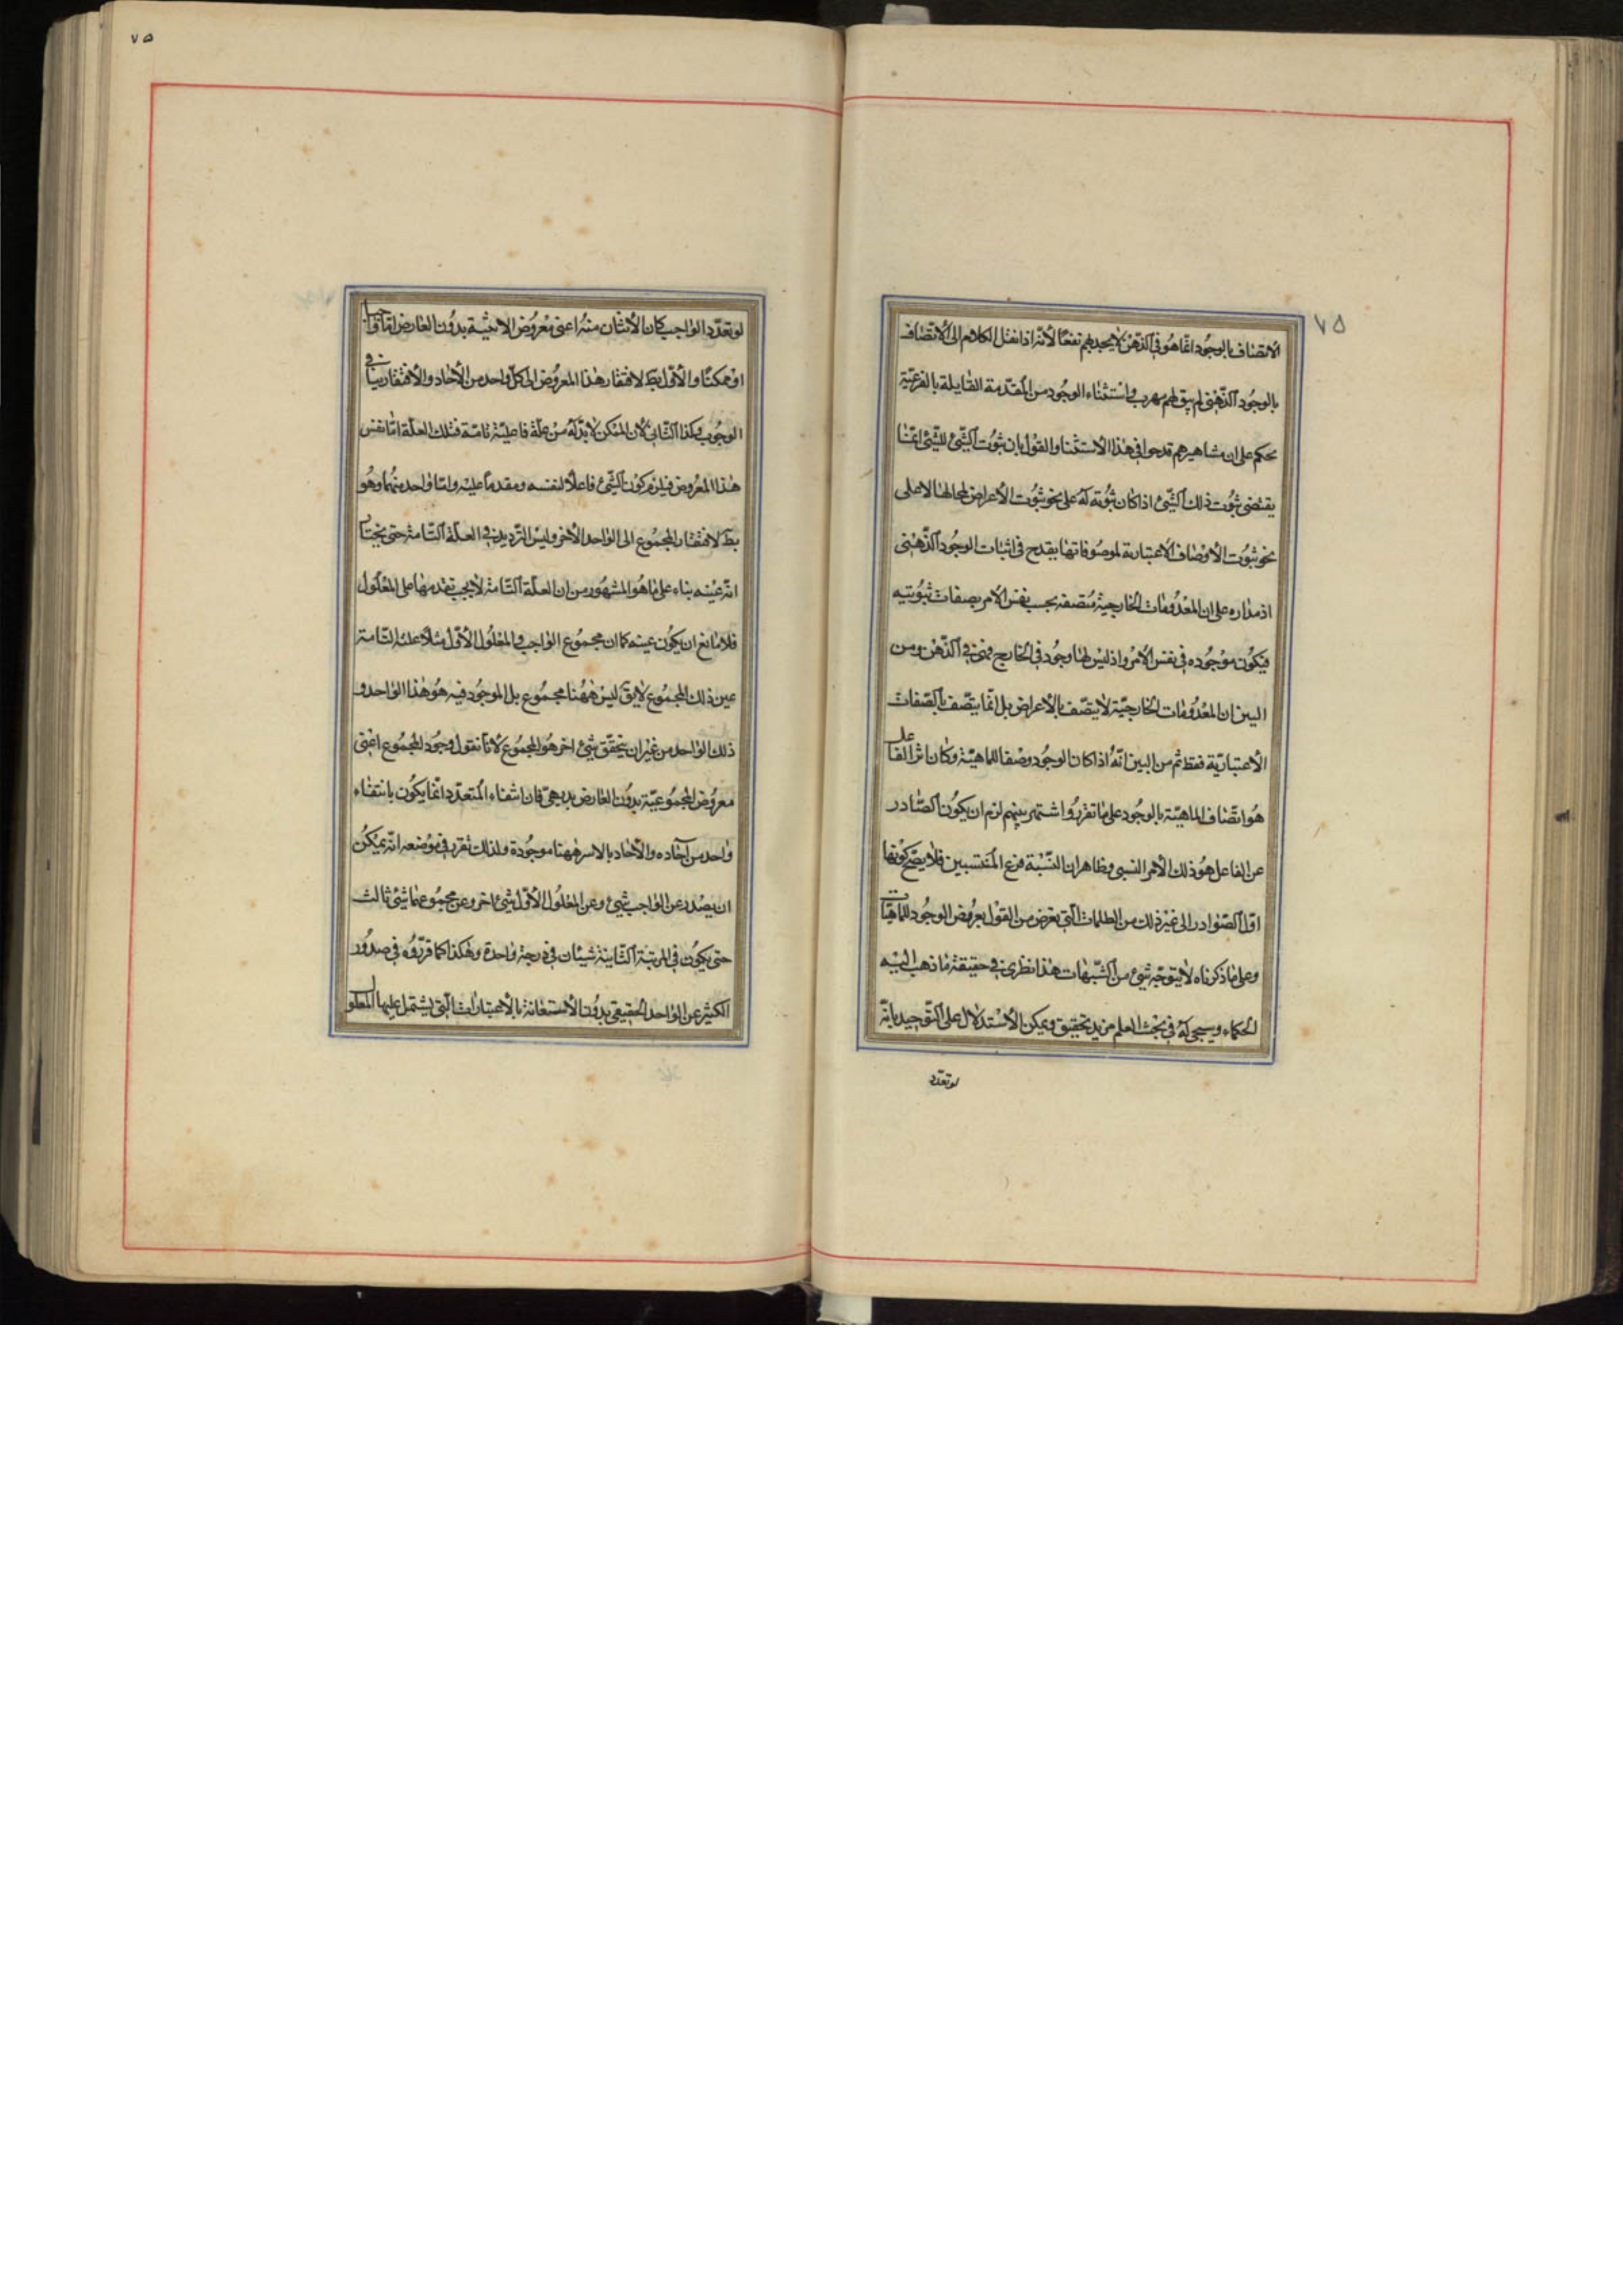 ٧٥
الاتصاف بالوجود انّما هو فى الذّهن لا يجديهم نفعًا لانّه اذا نقل الكلام الى الاتصاف
بالوجود الذّهنى لم يبق لهم مهرب واستثناء الوجود من المقدّمة القايلة بالفرعيّة
تحكم على ان مشاهيرهم قدحوا فى هذا الاستثنا والقول بان ثبوت الشّئ للشّئ انما
يقتضى ثبوت ذلك الشّئ اذا كان ثبوته له على نحو ثبوت الاعراض لمحالها لا على
نحو ثبوت الاوصاف الاعتبارية لموصوفاتها يقدح فى اثبات الوجود الذّهنى
اذ مداره على ان المعدومات الخارجية متصفه بحسب نفس الامر بصفات ثبوتيه
فيكون موجوده فى نفس الامر واذ ليس لها وجود فى الخارج فهى فى الذّهن ومن
البين ان المعدومات الخارجيّة لا يتصّف بالاعراض بل انّما يتّصف بالصّفات
الاعتباريّة فقط ثم من البين انّه اذا كان الوجود وصفا للماهيّة وكان اثر الفاعل
هو اتّصاف الماهيّة بالوجود على ما تقرر واشتهر بينهم لزم ان يكون الصّادر
عن الفاعل هو ذلك الامر النسبى وظاهر ان النّسبة فرع المنتسبين فلا يصّح كونها
اوّل الصّوادر الى غير ذلك من الظلمات الّتى تعرض من القول بعروض الوجود للماهيّات
وعلى ما ذكرناه لا يتوجّه شئ من الشّبهات هذا نظرى فى حقيقة ما ذهب اليه
الحكماء وسيجئ له فى بحث العلم مزيد تحقيق ويمكن الاستدلال على التّوحيد بانّه
لو تعدّد
٧٥
لو تعدّد الواجب كان الاثنان منه اعنى معروض الاثنيّة بدون العارض امّا واجبا
او ممكنًا والاوّل بط لافتقار هذا المعروض الى كلّ واحد من الآحاد والافتقار ينافى
الوجوب وكذا الثّانى لان الممكن لا بدّ له من علّة فاعليّة تامّة فتلك العلّة امّا نفس
هذا المعروض فيلزم كون الشّئ فاعلًا لنفسه ومقدماً عليه وامّا واحد منهما وهو
بط لافتقار المجموع الى الواحد الاخر وليس التّرديد فى العلّة التّامة حتى يختار
انّه عينه بناء على ما هو المشهور من ان العلّة التّامة لا يجب تقدمها على المعلول
فلا مانع ان يكون عينه كما ان مجموع الواجب والمعلول الاوّل مثلا علته التّامة
عين ذلك المجموع لا يق ليس ههنا مجموع بل الموجود فيه هو هذا الواحد و
ذلك الواحد من غير ان يتحقّق شئ اخر هو المجموع لانّا نقول وجود المجموع اعنى
معروض المجموعيّة بدون العارض بديهى فان انتفاء المتعدّد انّما يكون بانتفاء
واحد من آحاده والآحاد بالاسر ههنا موجودة ولذلك تقرر فى موضعه انّه يمكن
ان يصدر عن الواجب شئ وعن المعلول الاوّل شئ اخر وعن مجموعهما شئ ثالث
حتى يكون فى المرتبة الثّانية شيئان فى درجة واحدة وهكذا كما قرّروه فى صدور
الكثير عن الواحد الحقيقى بدون الاستعانة بالاعتبارات الّتى يشتمل عليها المعلول